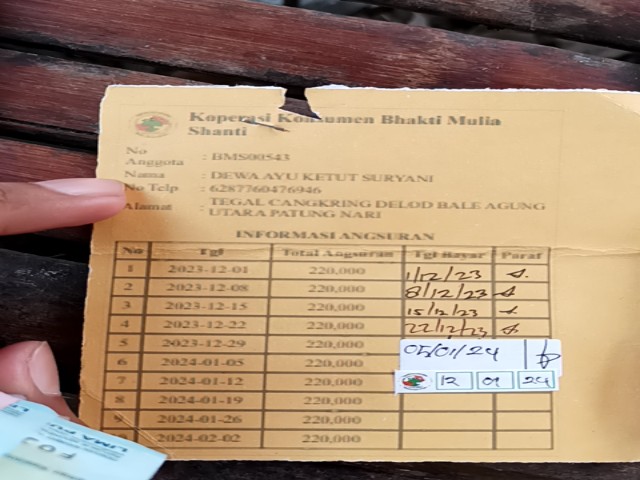 Koperasi Konsumen Bhakti Mulia
Shanti
No
Anggota : BMS00543
Nama : DEWA AYU KETUT SURYANI
No Telp : 6287760476946
Alamat : TEGAL CANGKRING DELOD BALE AGUNG
UTARA PATUNG NARI
INFORMASI ANGSURAN
No Tgl Total Angsuran Tgl Bayar Paraf
1 2023-12-01 220,000 1/12/23
2 2023-12-08 220,000 8/12/23
3 2023-12-15 220,000 15/12/23
4 2023-12-22 220,000 22/12/23
5 2023-12-29 220,000 05/01/24
6 2024-01-05 220,000
7 2024-01-12 220,000 12 01 24
8 2024-01-19 220,000
9 2024-01-26 220,000
2024-02-02 220,000